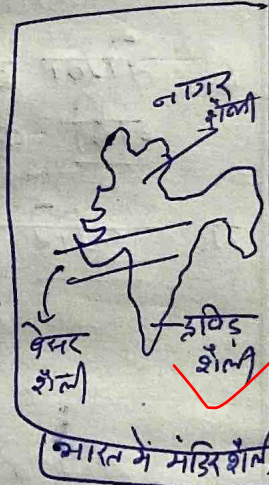 नागर
शैली
वेसर
शैली
द्रविड़
शैली
भारत में मंदिर शैली